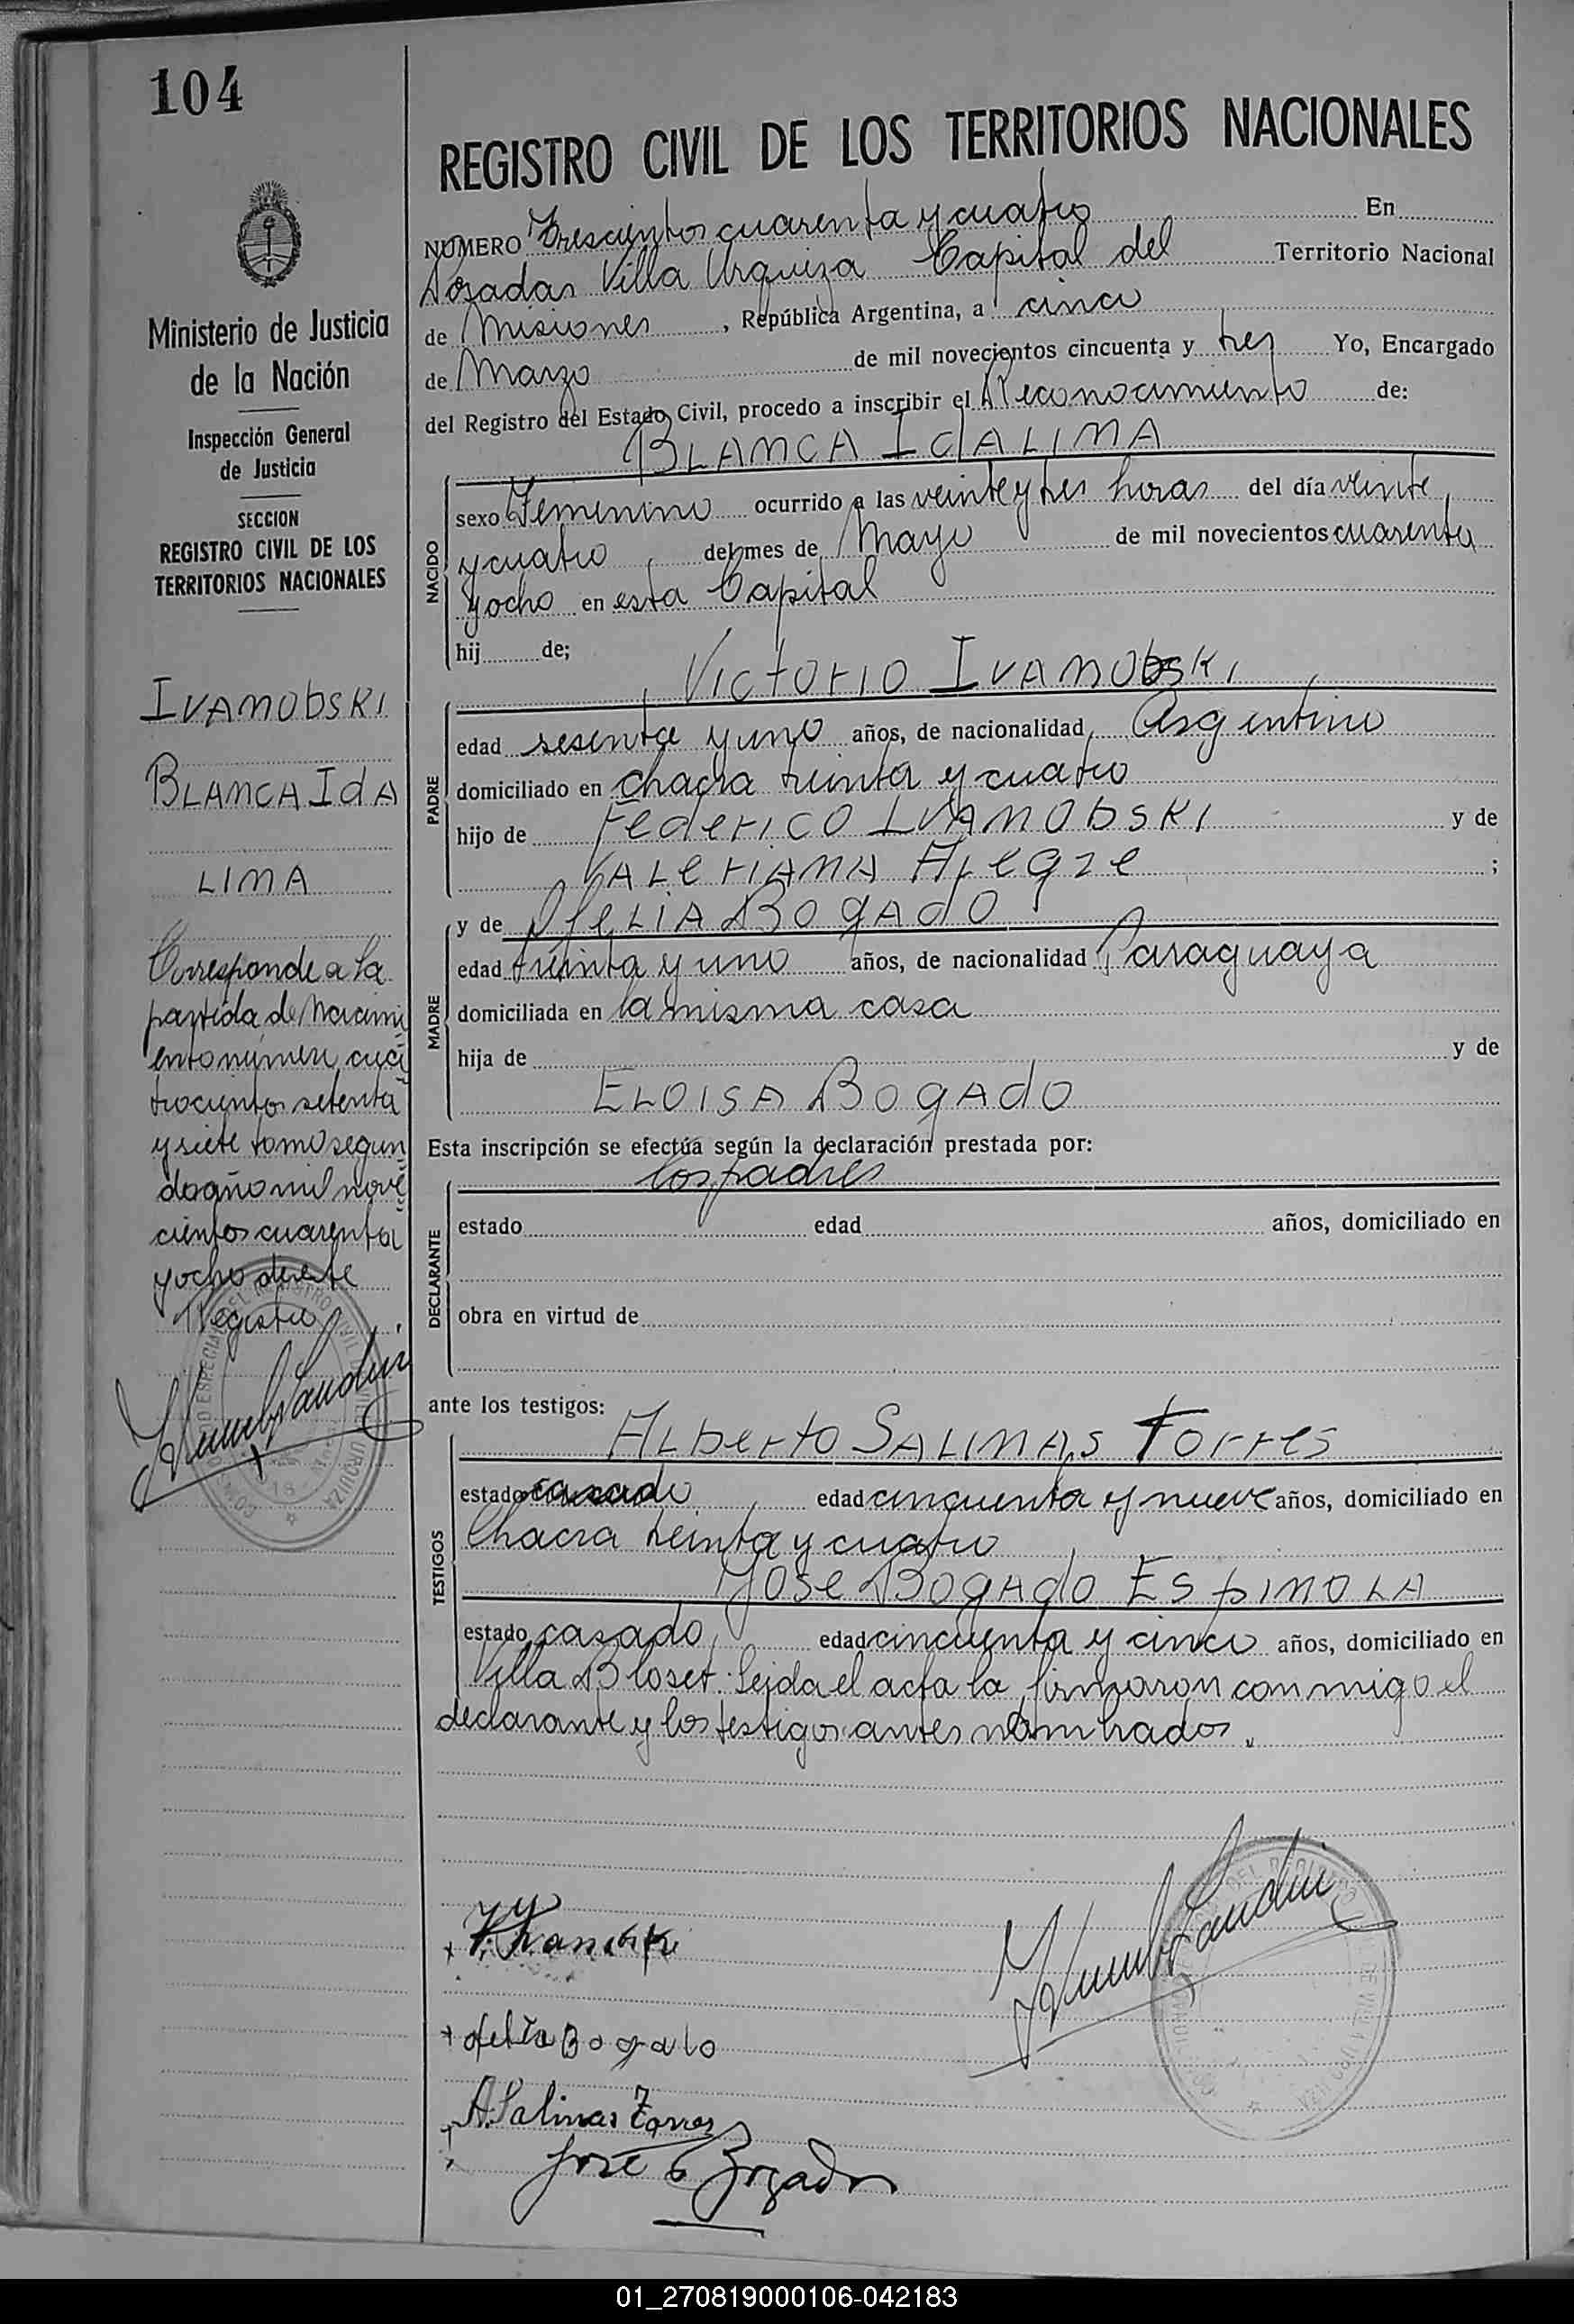 104
Ministerio de Justicia
de la Nación
Inspección General
de Justicia
SECCION
REGISTRO CIVIL DE LOS
TERRITORIOS NACIONALES
IVANObSKI
BLANCA IdA
LINA
Corresponde a la
partida de Nacimi
ento número cua
trocientos setenta
y siete tomo segun
do año mil nove
cientos cuarenta
y ocho de este
Registro
REGISTRO CIVIL DE LOS TERRITORIOS NACIONALES
NUMERO Trescientos cuarenta y cuatro En
Posadas Villa Urquiza Capital del Territorio Nacional
de Misiones, República Argentina, a cinco
de Marzo de mil novecientos cincuenta y tres Yo, Encargado
del Registro del Estado Civil, procedo a inscribir el Reconocimiento de:
BLANCA IdALINA
NACIDO
sexo Femenino ocurrido a las veinte y tres horas del día veinte
y cuatro del mes de Mayo de mil novecientos cuarenta
y ocho en esta Capital
hij de;
VICtOrIO IVANObSKI
PADRE
edad sesenta y uno años, de nacionalidad Argentino
domiciliado en chacra treinta y cuatro
hijo de FederICO IVANObSKI y de
VALerIANA ALegre ;
y de OfeLIA BOgAdO
MADRE
edad treinta y uno años, de nacionalidad Paraguaya
domiciliada en la misma casa
hija de y de
ELOISA BOgAdO
Esta inscripción se efectúa según la declaración prestada por:
los padres
DECLARANTE
estado edad años, domiciliado en
obra en virtud de
ante los testigos:
ALberto SALINAS Torres
TESTIGOS
estado casado edad cincuenta y nueve años, domiciliado en
Chacra treinta y cuatro
JOSe BOgAdO ESpINOLA
estado casado edad cincuenta y cinco años, domiciliado en
Villa Bloset. Leida el acta la firmaron conmigo el
declarante y los testigos antes nombrados.
ofelia Bogado
A. Salinas Torres
José Bogado
01_270819000106-042183